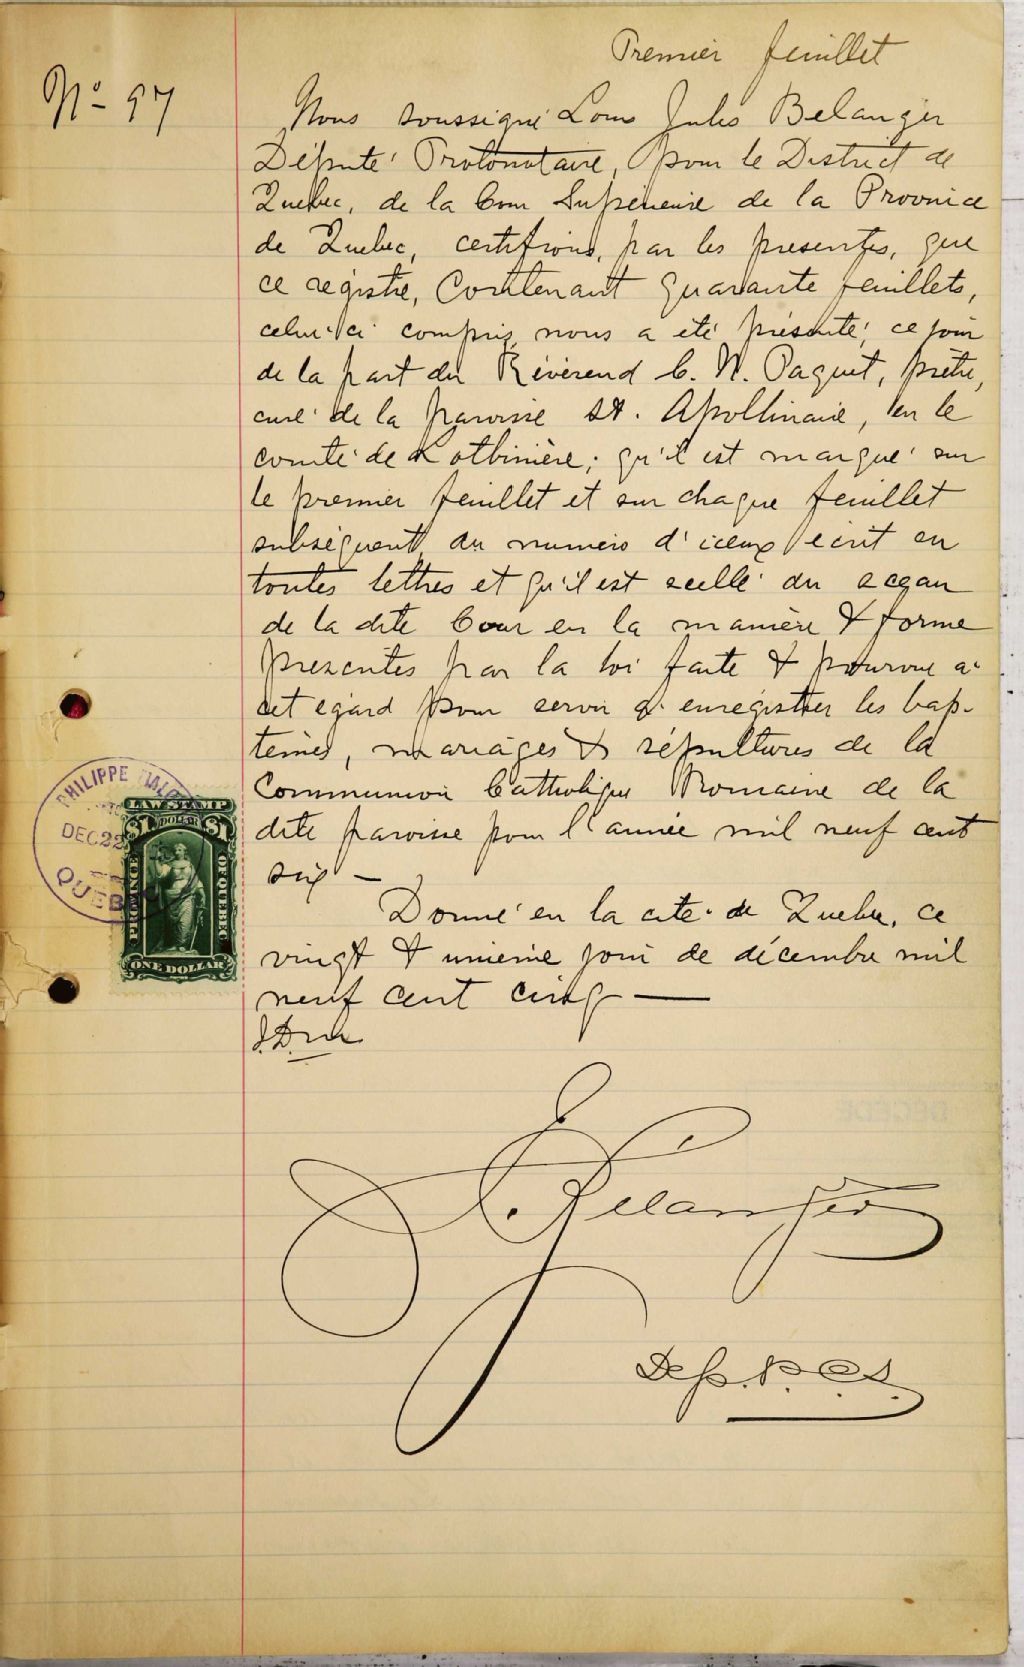 Premier feuillet
No 97
Nous soussigné Louis Jules Belanger
Député Protonotaire, pour le District de
Quebec, de la Cour Supérieure de la Province
de Quebec, certifions, par les presentes, que
ce régistre, Contenant quarante feuillets,
celui-ci compris, nous a été présenté, ce jour
de la part du Révérend C. N. Paquet, prêtre,
curé de la paroisse St. Apollinaire, en le
comté de Lotbinière; qu'il est marqué sur
le premier feuillet et sur chaque feuillet
subséquent, du numéro d'iceux écrit en
toutes lettres et qu'il est scellé du sceau
de la dite Cour en la manière & forme
prescrites par la loi faite & pourvue à
cet égard pour servir à enrégistrer les bap-
temes, mariages & sépultures de la
Communion Catholique Romaine de la
dite paroisse pour l'année mil neuf cent
six —
PHILIPPE
DEC 22
QUEBEC
LAW STAMP
$1 DOLLAR $1
PROVINCE OF QUEBEC
ONE DOLLAR
Donné en la cité de Quebec, ce
vingt & unième jour de décembre mil
neuf cent cinq —
Belanger
Dep. P. C. S.
DÉCÉDÉ